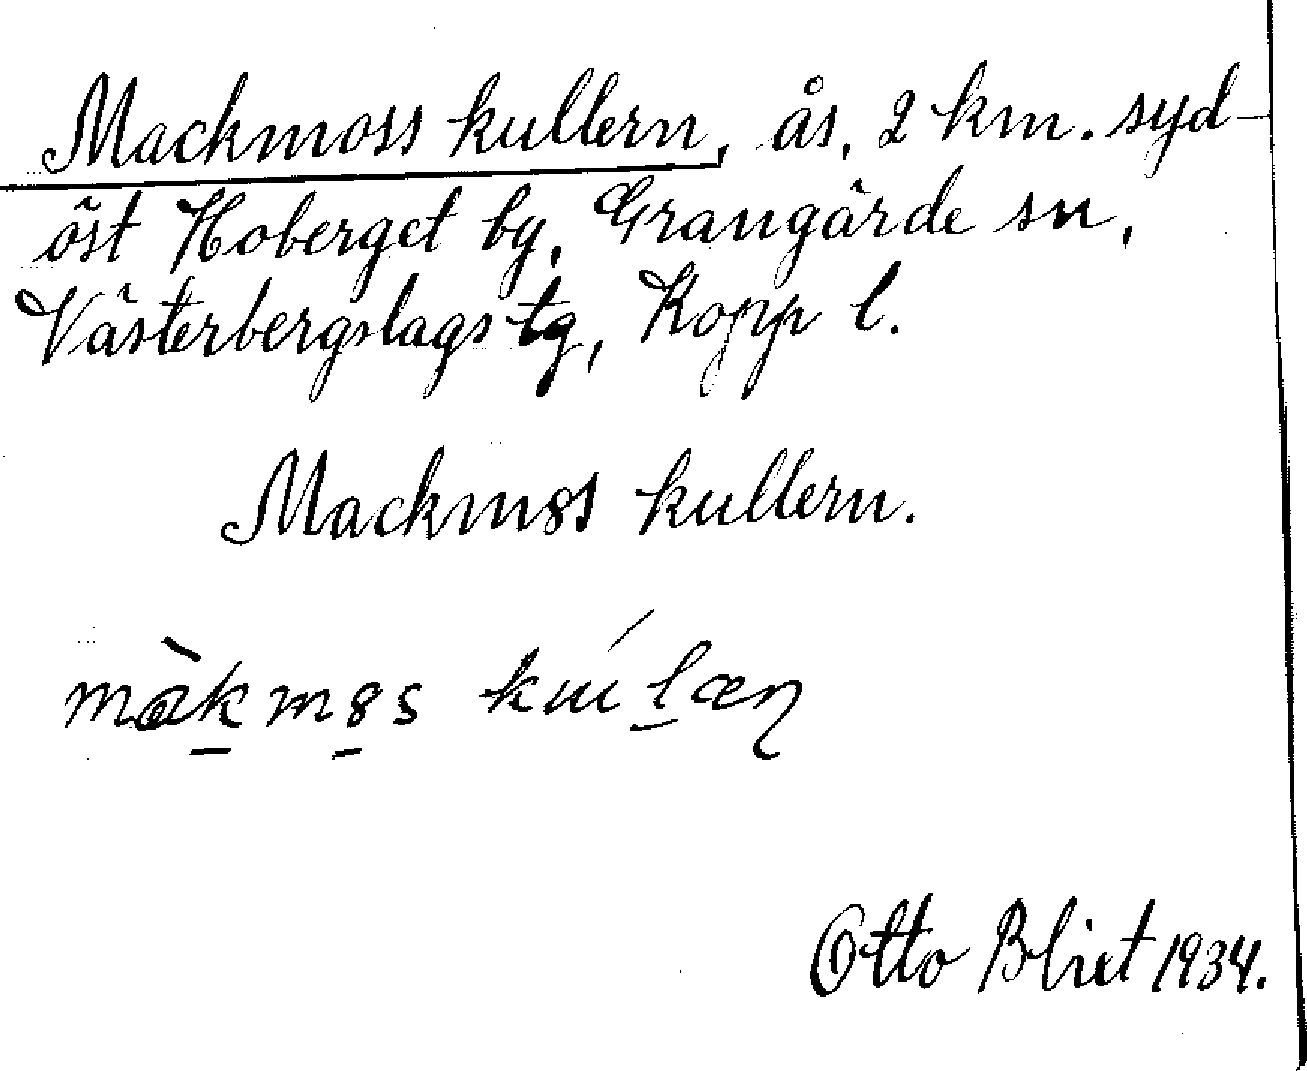 Mackmoss kullern, ås, 2 km. syd-
öst Hoberget by, Grangärde sn,
Västerbergslags tg, Kopp l.
Mackmȣs kullern.
màk̲mȣ̲s kúl̲æn̡
Otto Blixt 1934.